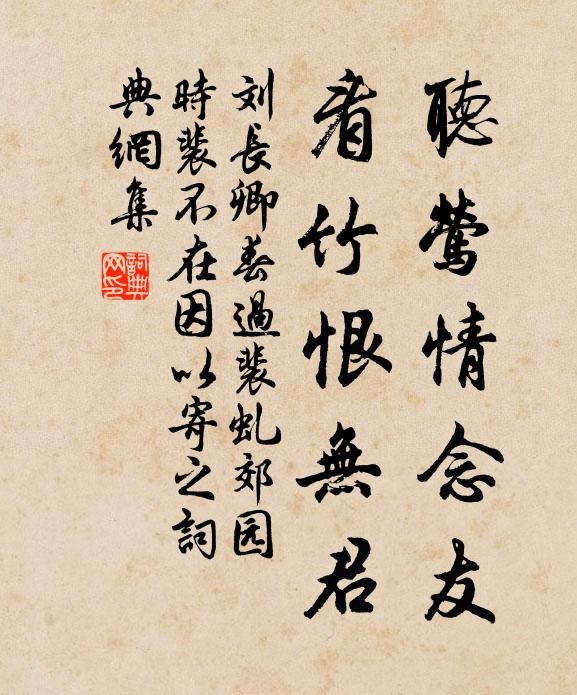 聽鶯情念友
看竹恨無君
刘長卿春過裴虬郊园
時裴不在因以寄之詞
典網集
詞典
网印